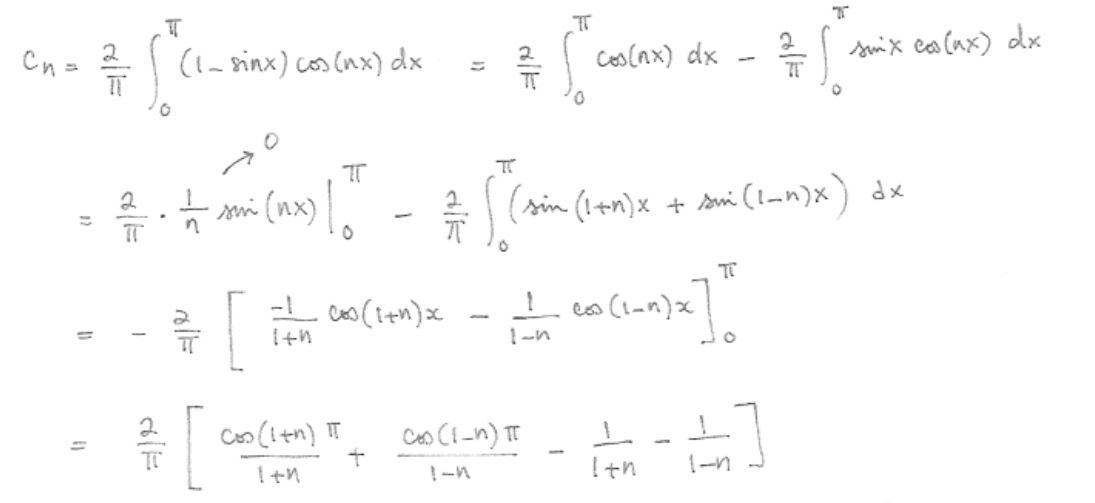 Cn = 2/π ∫₀^π (1 - sinx) cos(nx) dx = 2/π ∫₀^π cos(nx) dx - 2/π ∫₀^π sinx cos(nx) dx
= 2/π · 1/n sin(nx) |₀^π ↗ 0 - 2/π ∫₀^π (sin(1+n)x + sin(1-n)x) dx
= - 2/π [ -1/(1+n) cos(1+n)x - 1/(1-n) cos(1-n)x ]₀^π
= 2/π [ cos(1+n)π/(1+n) + cos(1-n)π/(1-n) - 1/(1+n) - 1/(1-n) ]